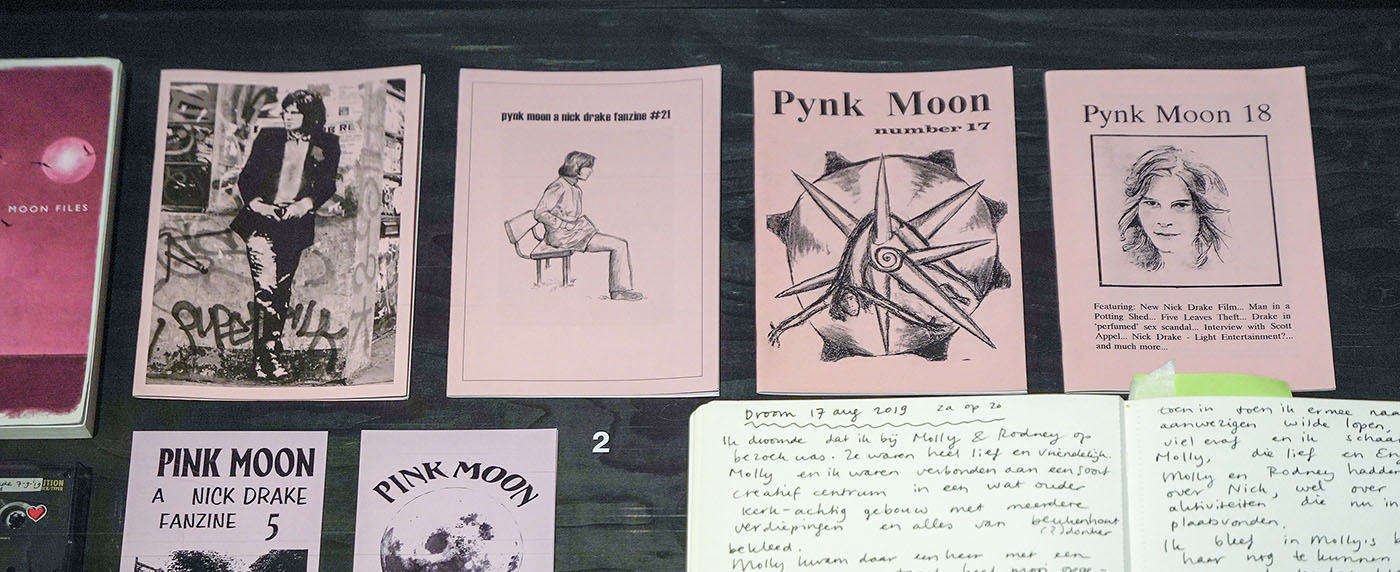 MOON FILES
pynk moon a nick drake fanzine #21
Pynk Moon
number 17
Pynk Moon 18
Featuring: New Nick Drake Film... Man in a
Potting Shed... Five Leaves Theft... Drake in
'perfumed' sex scandal... Interview with Scott
Appel... Nick Drake - Light Entertainment?...
and much more...
PINK MOON
A NICK DRAKE
FANZINE 5
PINK MOON
2
Droom 17 aug 2019 za op zo
Ik droomde dat ik bij Molly & Rodney op
bezoek was. Ze waren heel lief en vriendelijk.
Molly en ik waren verbonden aan een soort
creatief centrum in een wat ouder
kerk-achtig gebouw met meerdere
verdiepingen en alles van beukenhout
(?) donker
bekleed.
Molly kwam daar een heer met een
toen in toen ik ermee naar
aanwezigen wilde lopen,
viel eraf en ik schaam
Molly, die lief en En
Molly en Rodney hadden
over Nick, wel over
aktiviteiten die nu in
plaatsvonden.
Ik bleef in Molly's b
haar nog te kunnen